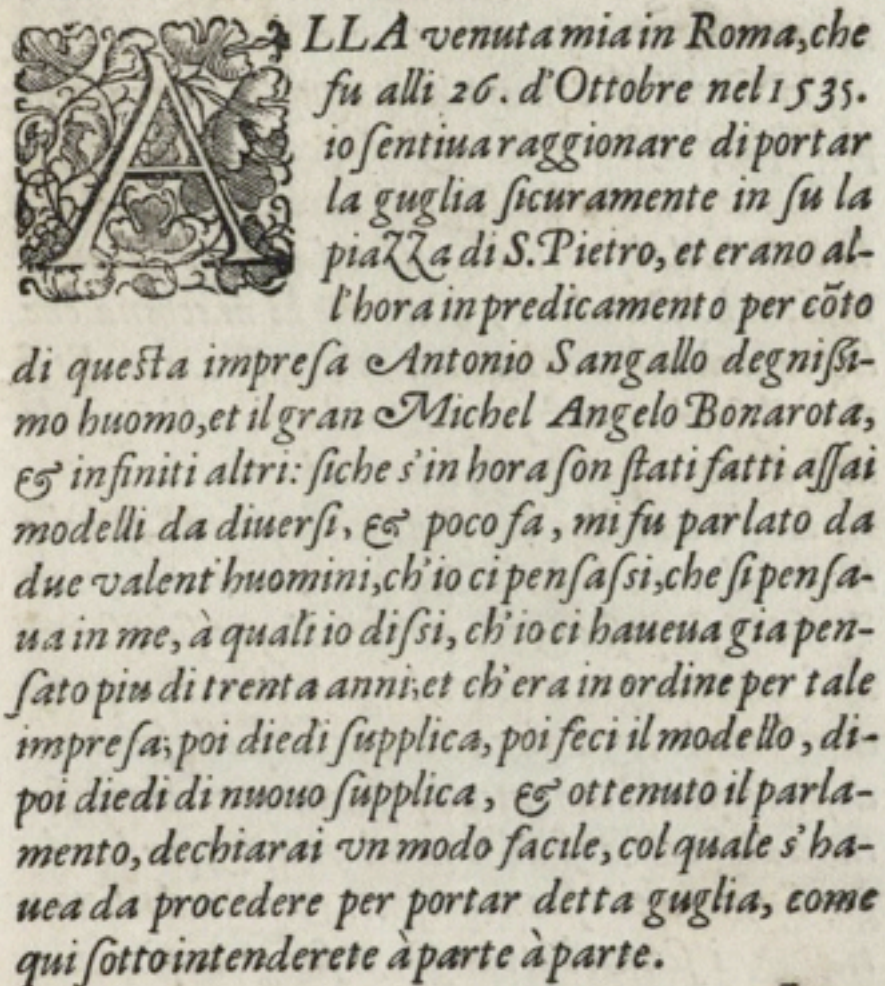 ALLA venuta mia in Roma, che
fu alli 26. d'Ottobre nel 1535.
io ſentiua raggionare di portar
la guglia ſicuramente in ſu la
piaZZa di S. Pietro, et erano al-
l'hora in predicamento per cõto
di queſta impreſa Antonio Sangallo degniſſi-
mo huomo, et il gran Michel Angelo Bonarota,
& infiniti altri: ſiche s'in hora ſon ſtati fatti aſſai
modelli da diuerſi, & poco fa, mi fu parlato da
due valent'huomini, ch'io ci penſaſsi, che ſi penſa-
ua in me, à quali io diſsi, ch'io ci haueua gia pen-
ſato piu di trenta anni; et ch'era in ordine per tale
impreſa; poi diedi ſupplica, poi feci il modello, di-
poi diedi di nuouo ſupplica, & ottenuto il parla-
mento, dechiarai vn modo facile, col quale s'ha-
uea da procedere per portar detta guglia, come
qui ſotto intenderete à parte à parte.